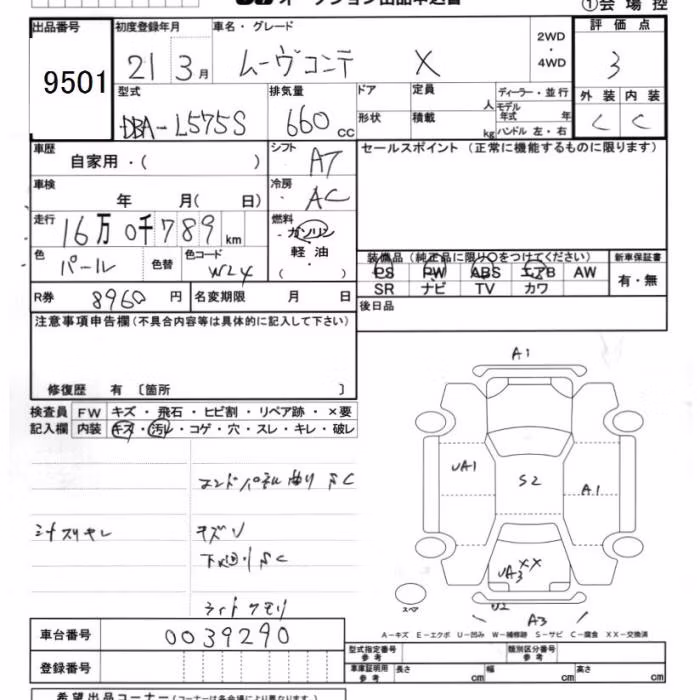 オークション出品申込書
①会場控
出品番号 9501
初度登録年月 21 3月
車名・グレード ムーヴコンテ X
2WD・4WD
評価点 3
外装 C 内装 C
型式 DBA-L575S
排気量 660 cc
ドア 形状
定員 人
積載 kg
ディーラー・並行
モデル年式 年
ハンドル 左・右
車歴 自家用・( )
シフト AT
セールスポイント (正常に機能するものに限ります)
車検 年 月( 日)
冷房 AC
走行 16万0千789km
燃料 ガソリン 軽油 ・( )
色 パール 色替
色コード W24
装備品 (純正品に限り○をつけてください)
新車保証書
PS PW ABS エアB AW
SR ナビ TV カワ
有・無
R券 8960 円
名変期限 月 日
後日品
注意事項申告欄 (不具合内容等は具体的に記入して下さい)
修復歴 有 〔箇所 〕
検査員記入欄
FW キズ・飛石・ヒビ割・リペア跡・×要
内装 キズ・汚レ・コゲ・穴・スレ・キレ・破レ
エンドパネル曲り SC
シートスリキレ
キズU
下回りSC
ライトクモリ
A1
UA1 S2 A1
UA3 XX
U2
A3
スペア
A-キズ E-エクボ U-凹み W-補修跡 S-サビ C-腐食 XX-交換済
車台番号 0039290
登録番号
型式指定番号 参考
類別区分番号 参考
車庫証明用 参考 長さ cm 幅 cm 高さ cm
希望出品コーナー (コーナーは各会場により異なります。)